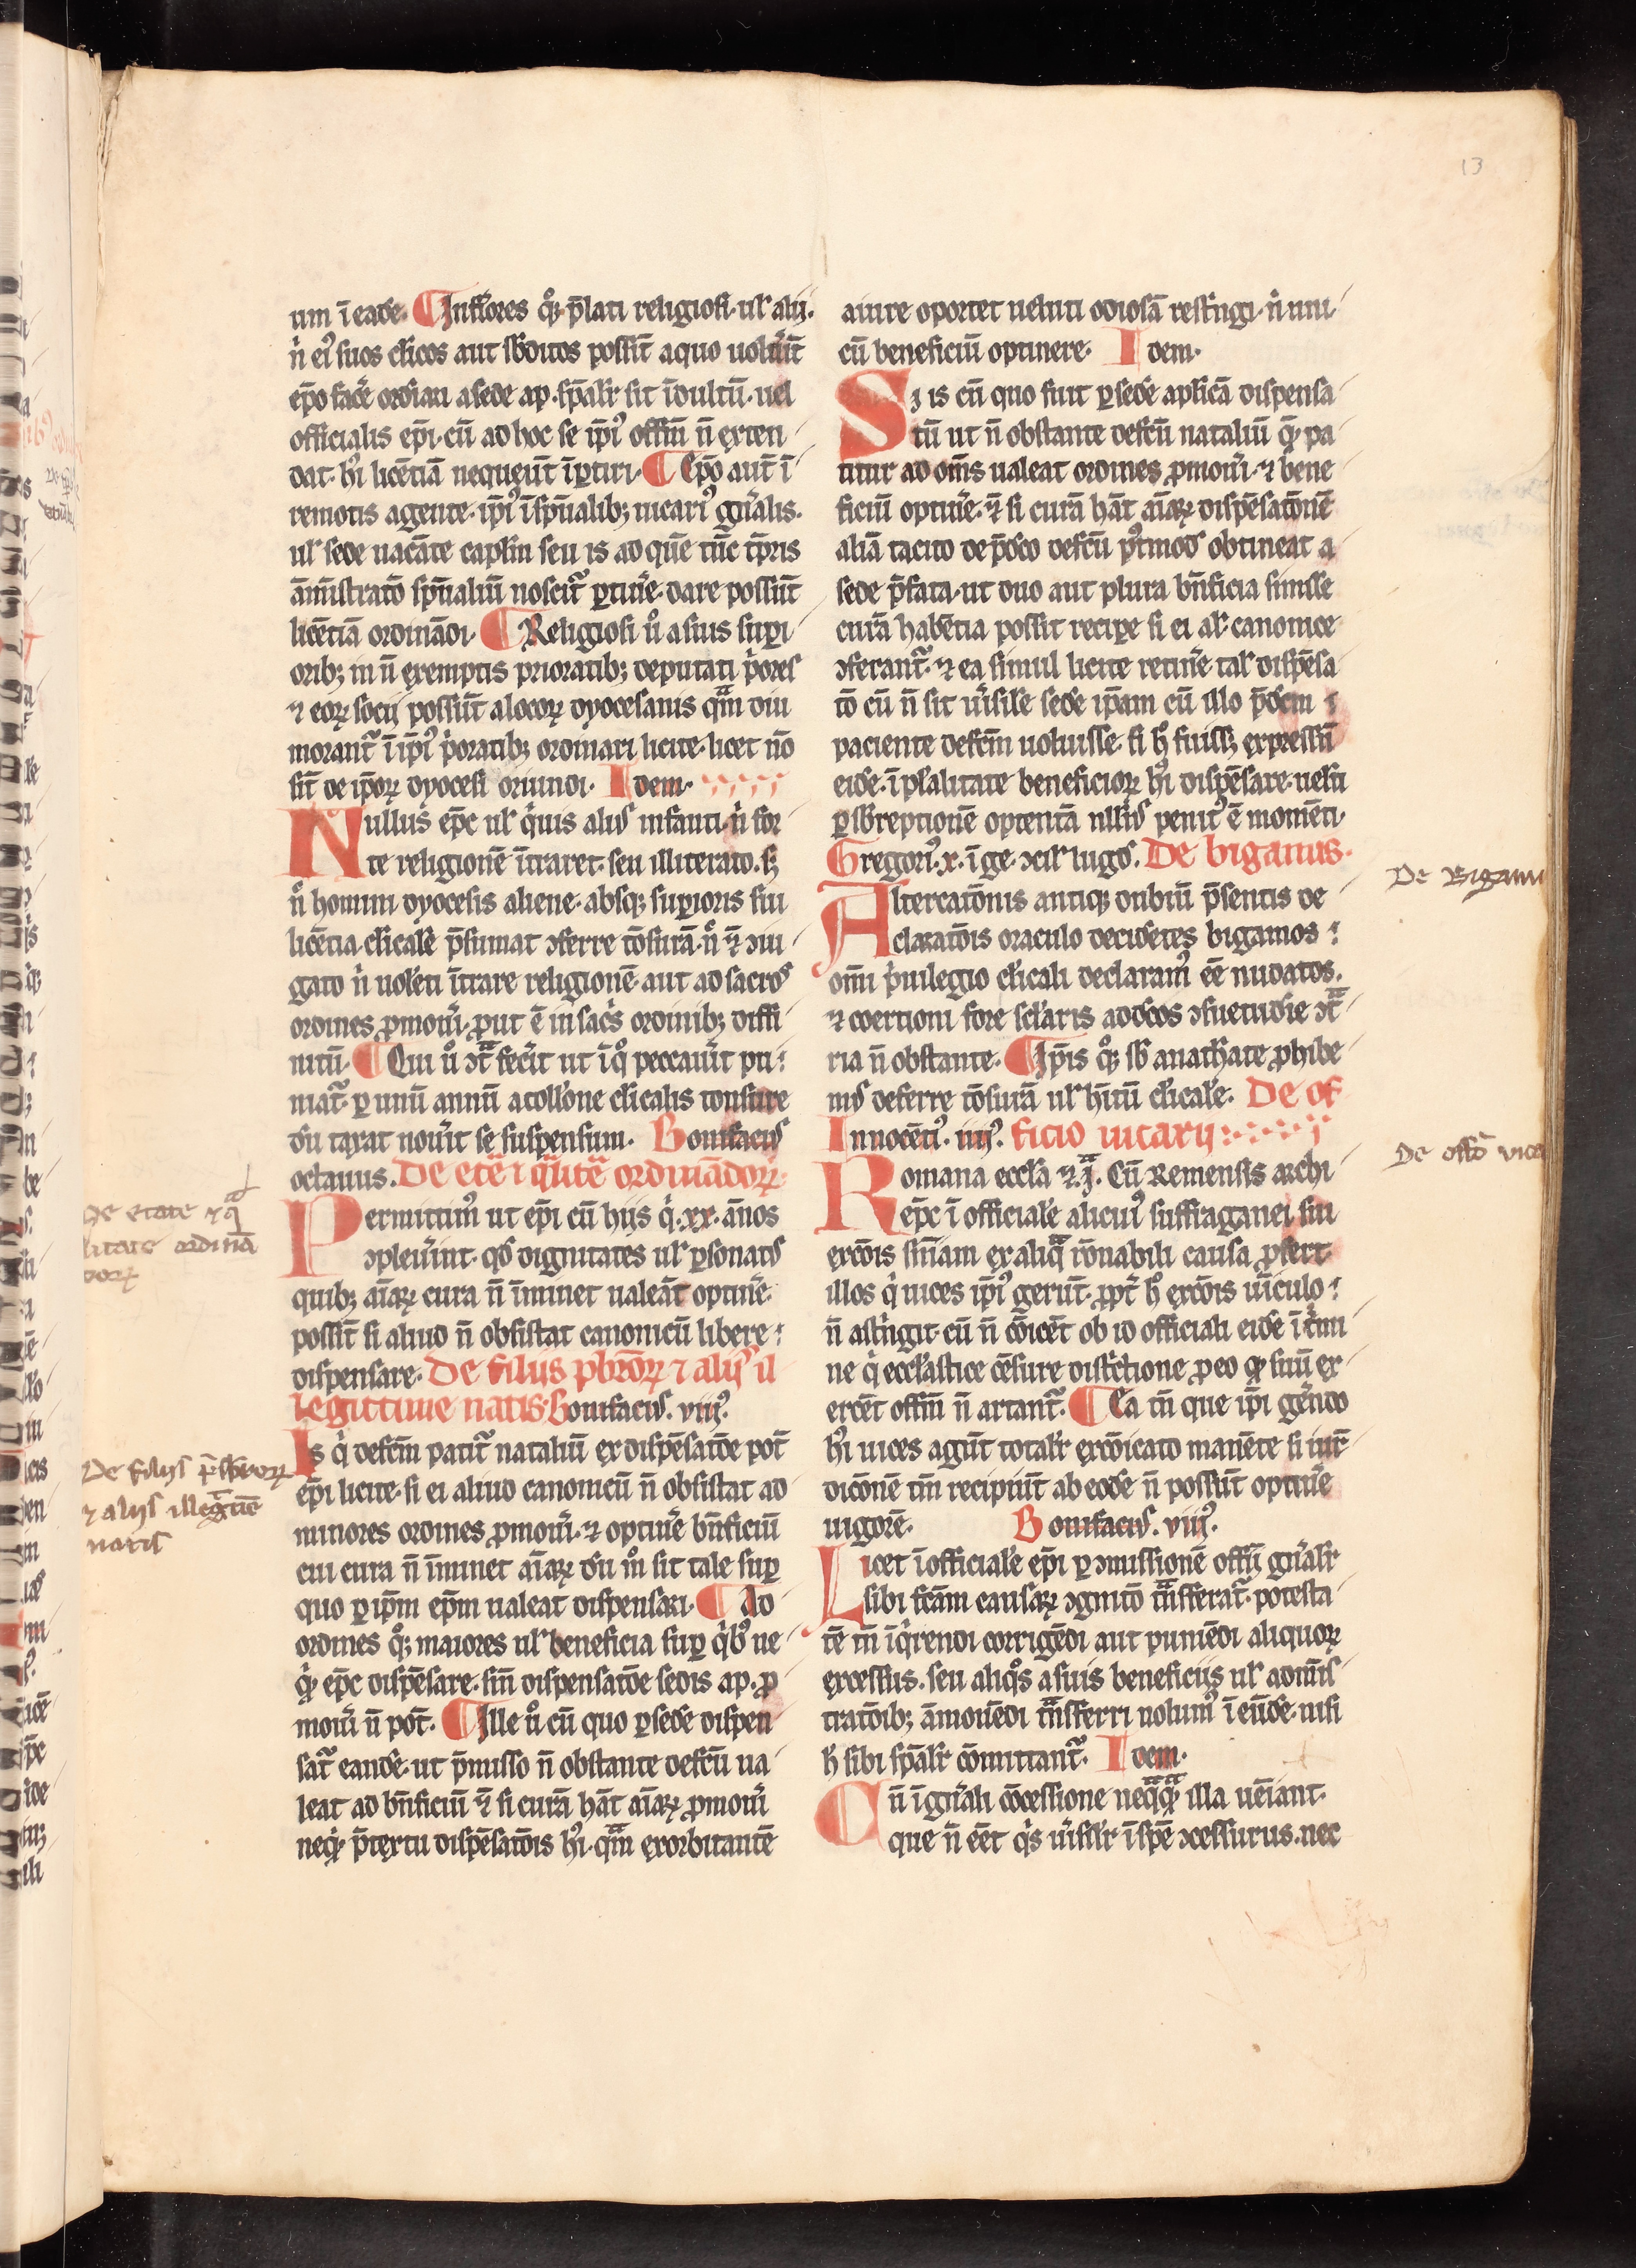 13
um ī eadē. Inferiores qͦꝫ p̄lati religiosi. ul̓ alij.
n̄ eiꝰ suos cl̓icos aut s̄bditos possīt a quo uolūīt
ep̄o facē ordīari a sede ap. sp̄alr̄ sit īdultū. uel
officialis ep̄i. cū ad hoc se ip̄iꝰ offm̄ n̄ exten
dat. hͥ licētiā nequeūt īꝑtiri. Ep̄o aut̄ ī
remotis agente. ip̄iꝰ ī sp̄ualibꝫ uicariꝰ gn̄alis.
ul̓ sede uacāte capl̄m seu is ad quē tūc tp̄ris
āmīstratō sp̄ualiū noscit̄ ꝑtinē. dare possūt
licētiā ordinādi. Religiosi ūo a suis suꝑi
oribꝫ in n̄ exemptis prioratibꝫ deputati p̄ores
⁊ eoꝝ socij possūt a locoꝝ dyocesanis qm̄ diu
morant̄ ī ip̄iꝰ p̄oratibꝫ ordinari licite. licet nō
sīt de ip̄oꝝ dyocesi oriundi. Idem.
Nullus ep̄c ul̓ qͥuis aliꝰ infanti. n̄ for
te religionē ītraret. seu illiterato. sꝫ
n̄ homini dyocesis aliene. absqꝫ suꝑioris sui
licētia. cl̓icalē p̄sumat ↄferre tōsurā. n̄ ⁊̄ ↄiu
gato n̄ uolēti ītrare religionē. aut ad sacros
ordines ꝓmouī. ꝓut ē in sacͥs ordinibꝫ diffi
nitū. Qui ūo ↄt̄ fecīt ut ī qͦ peccauīt pu
niat̄. ꝑ unū annū a coll̓one cl̓icalis tonsure
dū taxat nouīt se suspensum. Bonifaciꝰ
octauus. De etē ⁊ qͣlitē ordinādoꝝ.
Permittimꝰ ut ep̄i cū hijs qͥ. xx. ānos
ↄpleuīnt. qͦd dignitates ul̓ ꝑsonatꝰ
quibꝫ aīaꝝ cura n̄ īminet ualeāt optinē.
possīt si aliud n̄ obsistat canonicū libere
dispensare. De filijs pb̄roꝝ ⁊ alijs il
legittime natis. Bonifaciꝰ. viijꝰ.
Is qͥ defcm̄ patit̄ nataliū ex dispēsatōe pot̄
ep̄i licite. si ei aliud canonicū n̄ obsistat ad
minores ordines ꝓmouī. ⁊ optinē bn̄ficiū
cui cura n̄ īminet aīaꝝ dū mͦ sit tale suꝑ
quo ꝑ ip̄m ep̄m ualeat dispensari. Ad
ordines qͦꝫ maiores ul̓ beneficia suꝑ qͥbꝰ ne
qͥꝫ ep̄c dispēsare. sin̄ dispensatōe sedis ap. ꝓ
mouī n̄ pot̄. Ille ūo cū quo ꝑ sedē dispen
sat̄ eandē. ut p̄misso n̄ obstante defcū ua
leat ad bn̄ficiū ⁊̄ si curā hāt aīaꝝ ꝓmouī
neqͥꝫ p̄textu dispēsatōis hͥ. qm̄ exorbitantē
a iure oportet ueluti odiosā restͥngi. n̄ uni
cū beneficiū optinere. Idem.
Sꝫ is cū quo fuit ꝑ sedē aplicā dispensa
tū ut n̄ obstante defcū nataliū qͣꝫ pa
titur ad om̄s ualeat ordines ꝓmouī. ⁊ bene
ficiū optinē. ⁊̄ si curā hāt aīaꝝ dispēsatōnē
aliā tacito de p̄dco defcū pͦtmoꝰ obtineat a
sede p̄fata. ut duo aut plura bn̄ficia simile
curā habētia possit recipe si ei al̓ canonice
ↄferant̄. ⁊ ea simul licite retinē. tal̓ dispēsa
tō cū n̄ sit ūisile sedē ip̄am cū illo p̄dcm
paciente defcm̄ uoluisse. si hͦ fuissꝫ expressū
eidē. ī pl̄alitate beneficioꝝ hͥ dispēsare. uelū
ꝑ sbreptionē optentā nll̓iꝰ penitꝰ ē momēti.
Gregoriꝰ. x. ī ge. ↄcil̓ lugdͦ. De bigamis.
Altercatōnis antiqꝫ dubiū p̄sentis de
claratōis oraculo decidētes bigamos
om̄i p̄uilegio cl̓icali declaramꝰ eē nudatos.
⁊ coertioni fore scl̓aris addcos ↄsuetudīe ↄt̄
ria n̄ obstante. Ip̄is qͦꝫ sb̄ anathāte ꝓhibe
mꝰ deferre tōsurā ul̓ hītū cl̓icalē. De of
Innocētiꝰ. iiijꝰ. ficio uicarij
Romana eccl̄a ⁊.j. Cū Remensis archi
ep̄c ī officialē alicuiꝰ suffraganei sui
excōis sn̄iam ex aliqͣ rōnabili causa ꝓfert.
illos qͥ uices ip̄iꝰ gerūt. ꝓpt̄ hͦ excōis uīculo
n̄ astͥngit. cū n̄ cōicēt ob id officiali eidē ī cͥmi
ne qͥ eccl̓astice cēsure distͥctione ꝓ eo qͦꝫ suū ex
ercēt offm̄ n̄ artant̄. Ea tn̄ que ip̄i gēndo
hͥ uices agūt totalr̄ excōicato manēte si iur̄
dicōnē tm̄ recipiūt ab eodē n̄ possūt optinē
uigorē. Bonifaciꝰ. viijꝰ.
Licet ī officialē ep̄i ꝑ ↄmissionē officij gn̄alr̄
sibi fcam̄ causaꝝ ↄgnitō tn̄sferat̄. potesta
tē tn̄ īqͥrendi corrigēdi aut puniēdi aliquoꝝ
excessus. seu aliqͦs a suis beneficijs ul̓ admīs
tratōibꝫ āmouēdi tn̄sferri nolumꝰ ī eūdē. nisi
hͦ sibi sp̄alr̄ cōmittant̄. Idem.
Cū ī gn̄ali cōcessione neqͣqͣꝫ illa ueīant.
que n̄ eēt qͥs ūisilr̄ ī spē ↄcessurus. nec
De etate ⁊ qͣ
litate ordinā
doꝝ
De filijs p̄sbr̄oꝝ
⁊ alijs illegītīe
natis
De Bigami
De offō vica